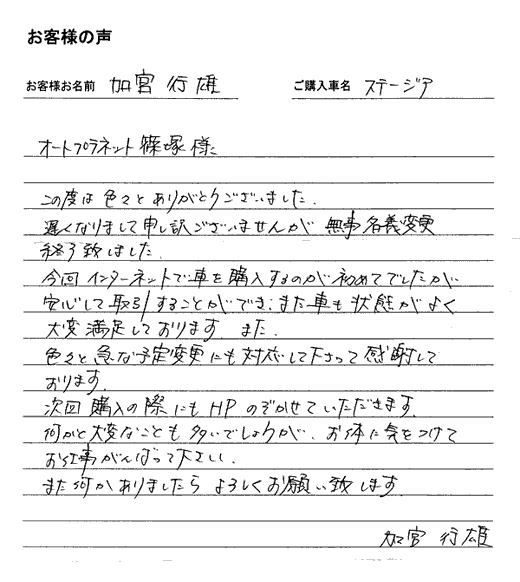 お客様の声
お客様お名前 加宮 行雄 ご購入車名 ステージア
オートプラネット 篠塚 様に
この度は 色々と ありがとうございました.
遅くなりまして 申し訳ございませんが 無事 名義変更
終了致しました.
今回 インターネットで 車を 購入するのが 初めてでしたが
安心して 取引することができ、また 車も 状態が よく
大変 満足しております. また.
色々と 急な予定変更にも 対応して下さって 感謝して
おります.
次回 購入の 際にも HP のぞかせていただきます.
何かと大変なことも 多いでしょうが、お体に気をつけて
お仕事がんばって下さい.
また何かありましたら よろしくお願い致します
加宮 行雄